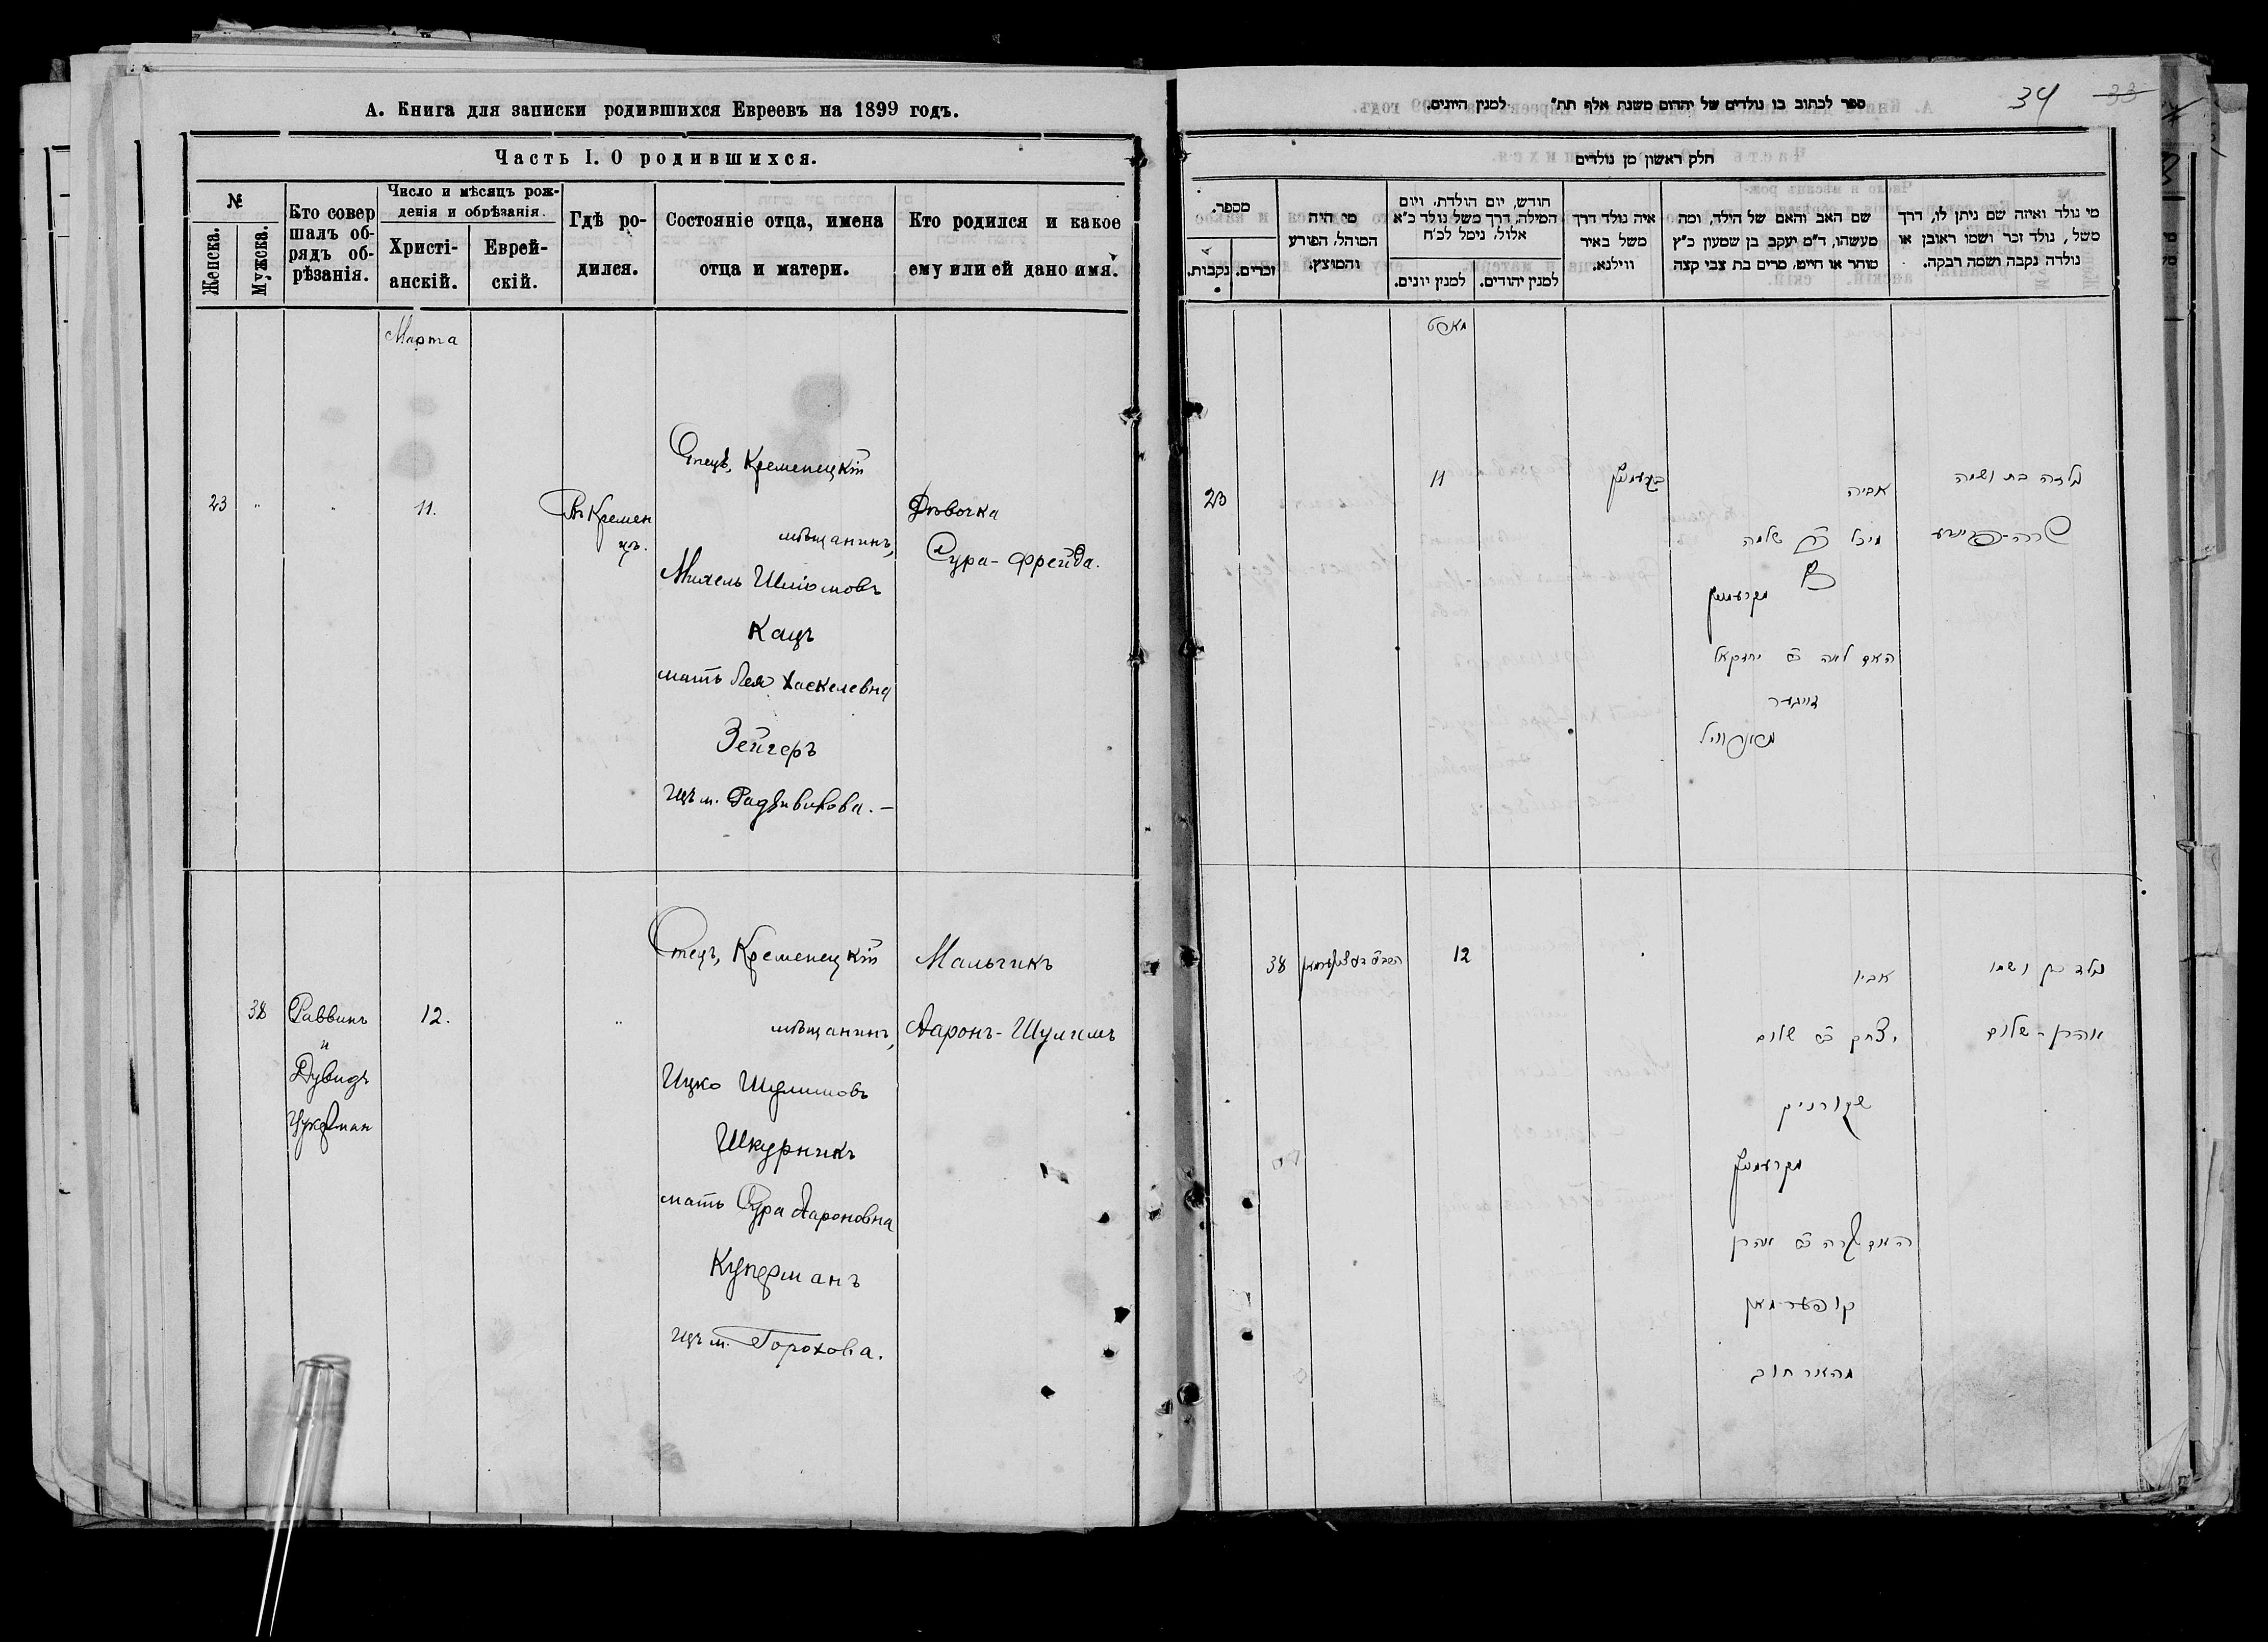 А. Книга для записки родившихся Евреевъ на 1899 годъ.
Часть I. О родившихся.
№
Женска.
Мужска.
Кто совер
шалъ об-
рядъ об-
рѣзанія.
Число и мѣсяцъ рож-
денія и обрѣзанія.
Христі-
анскій.
Еврей-
скій.
Гдѣ ро-
дился.
Состояніе отца, имена
отца и матери.
Кто родился и какое
ему или ей дано имя.
Марта
23
"
"
11.
Въ Кремен
цѣ.
Отецъ, Кременецкій
мѣщанинъ,
Михель Шліомовъ
Кацъ
мать Лея Хаскелевна
Зейгеръ
изъ м. Радзивилова. —
Дѣвочка
Сура-Фрейда.
38
Раввинъ
и
Дувидъ
Цукерман
12.
"
Отецъ, Кременецкій
мѣщанинъ,
Ицко Шулимовъ
Шкурникъ
мать Сура Аароновна
Куперманъ
изъ м. Горохова.
Мальчикъ
Ааронъ-Шулимъ
34 33
ספר לכתוב בו נולדים של יהודים משנת אלף תת" למנין היונים.
חלק ראשון מן נולדים
מי נולד ואיזה שם ניתן לו, דרך
משל, נולד זכר ושמו ראובן או
נולדה נקבה ושמה רבקה.
שם האב והאם של הילד, ומה
מעשהו, ד"מ יעקב בן שמעון כ"ץ
סוחר או חייט, מרים בת צבי קצה
איה נולד דרך
משל באיר
ווילנא.
חודש, יום הולדת, ויום
המילה, דרך משל נולד כ"א
אלול, נימל לכ"ח
למנין יהודים.
למנין יונים.
מי היה
המוהל, הפורע
והמוצץ.
מספר.
זכרים.
נקבות.
מארט
נולדה בת ושמה
שרה-פריידע
אביה
מיכל שלמה
מקרעמניץ
האם לאה יחזקאל
זייגער
בקרעמניץ
11
23
נולד בן ושמו
אהרן-שלום
אביו
יצחק שלום
שקורניק
מקרעמניץ
האם שרה אהרן
קופערמאן
מהארחוב
12
38